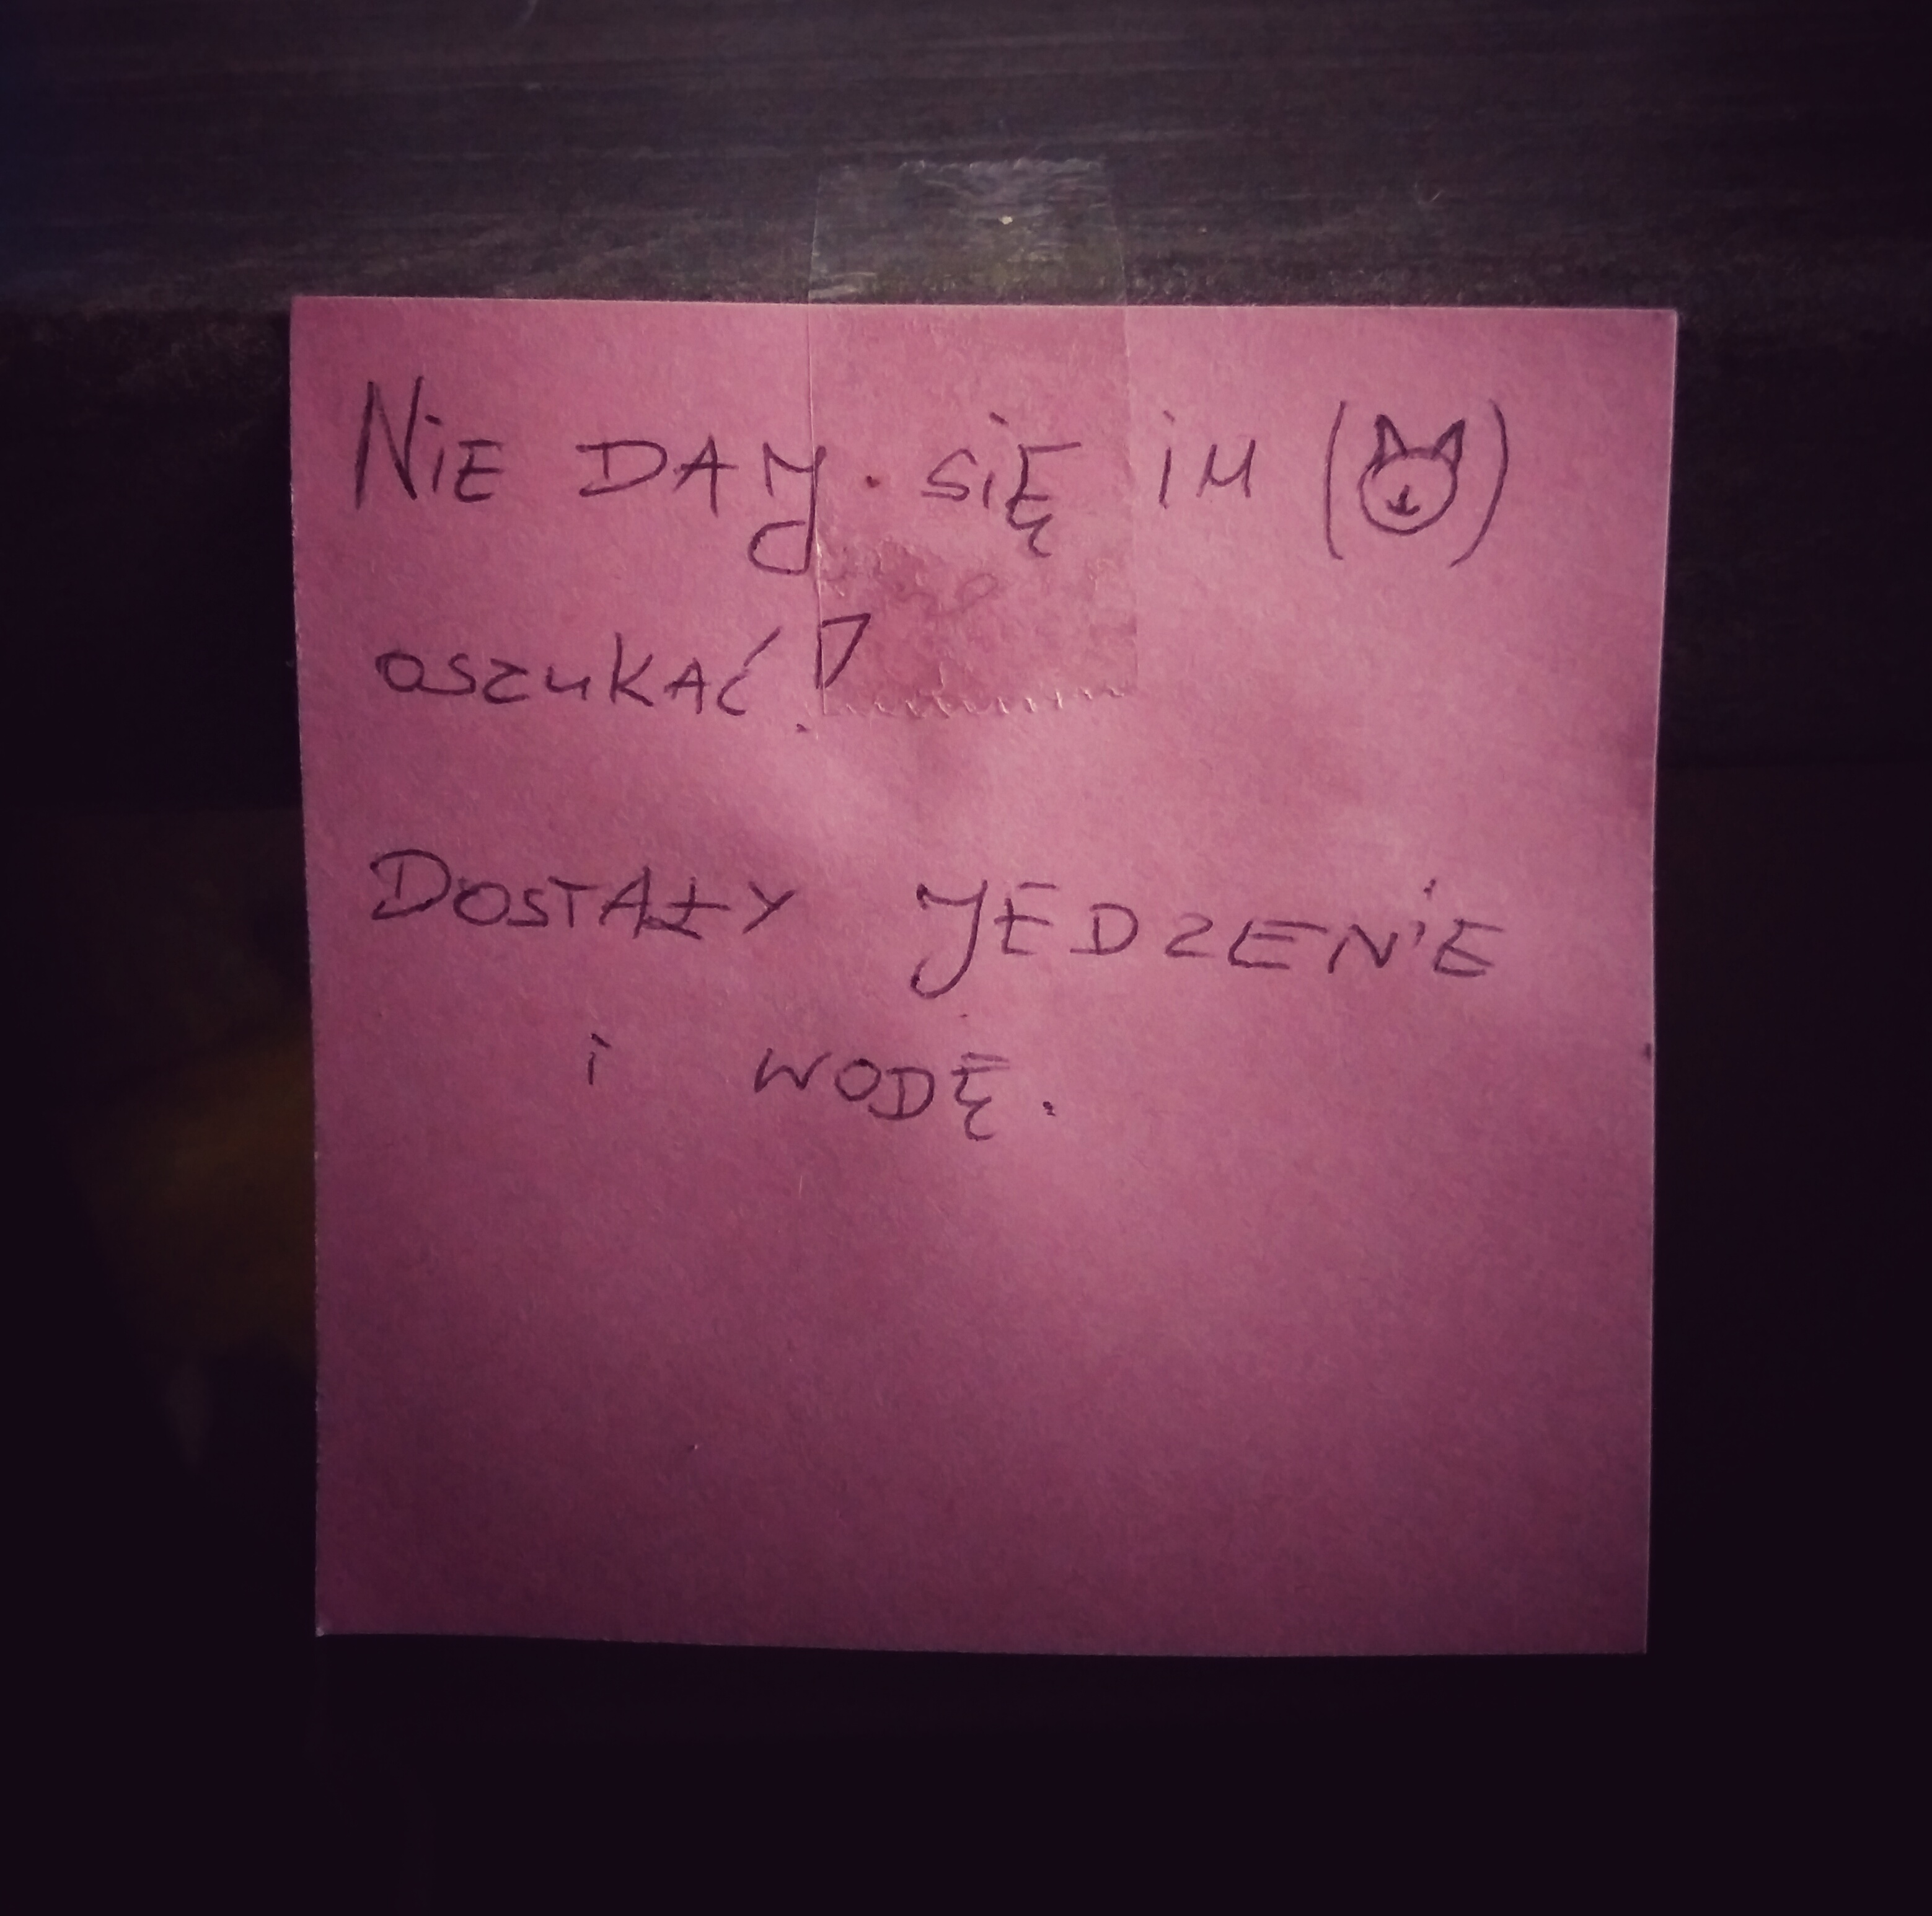 NiE DAJ SiĘ iM ( )
OSZUKAĆ!
DOSTAŁY JEDZENiE
i WODĘ.